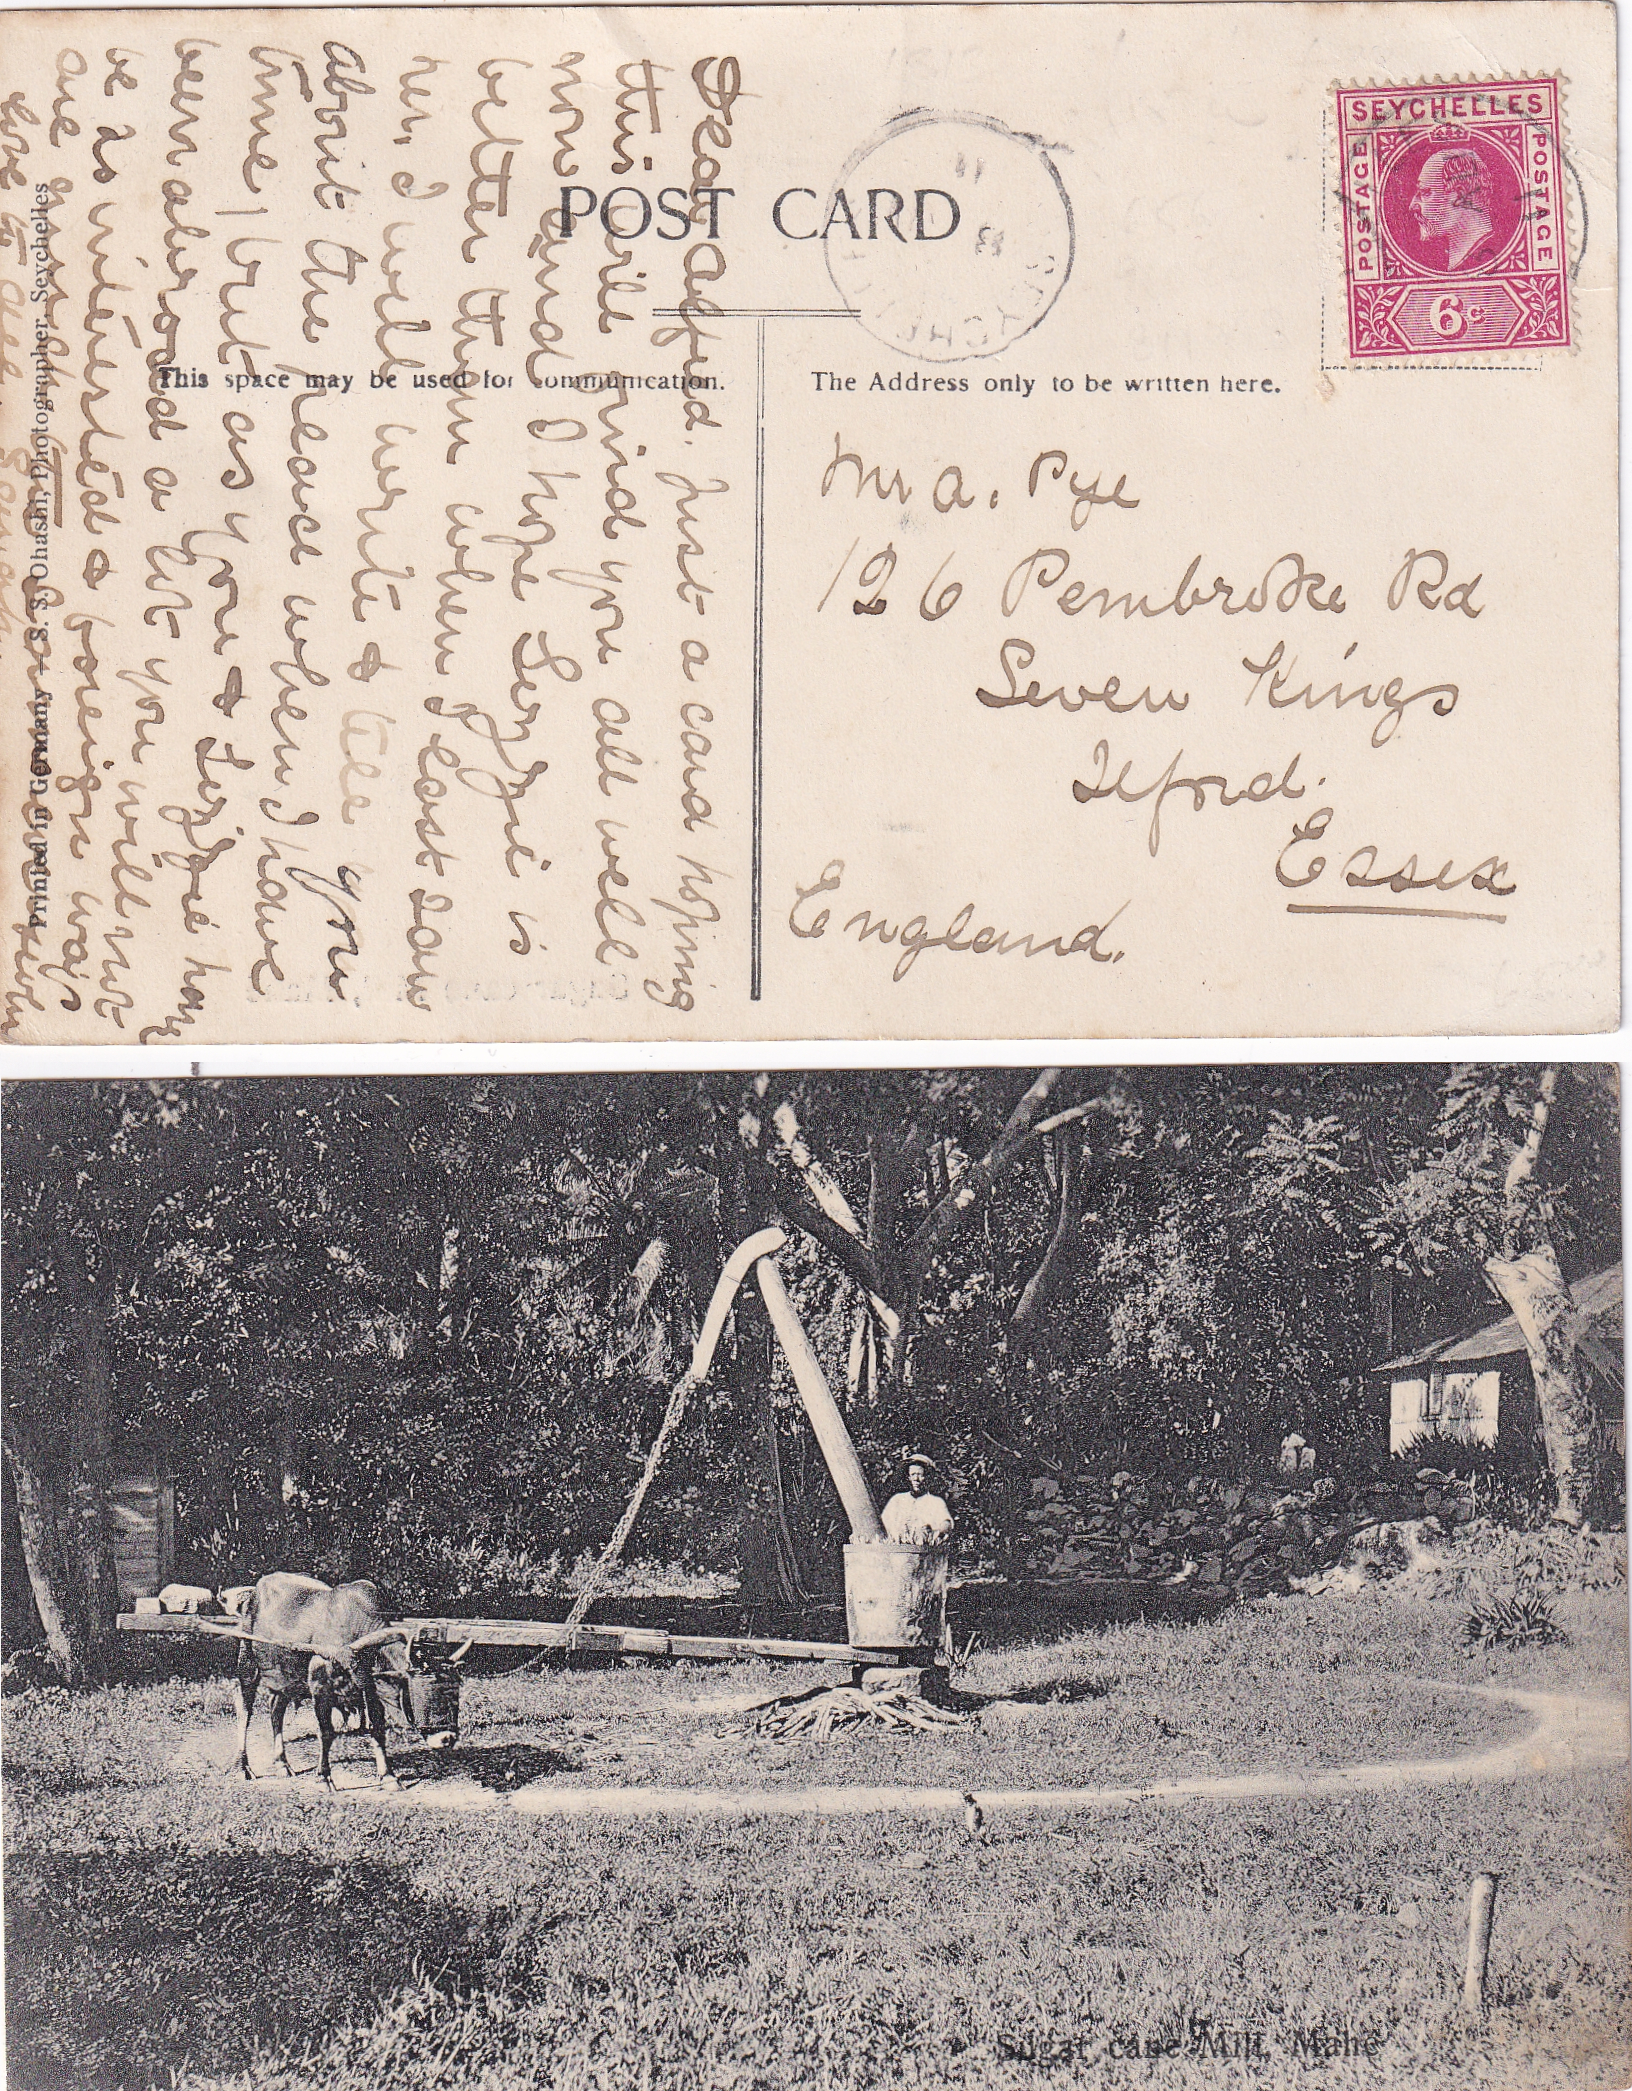 POST CARD
This space may be used for communication.
The Address only to be written here.
SEYCHELLES
POSTAGE
POSTAGE
6c
11
SEYCHELLES
Mr A. Pye
126 Pembroke Rd
Seven Kings
Ilford.
Essex
England.
Dear Alfred. Just a card hoping
this will find you all well
now and I hope Lizzie is
better than when I last saw
her. I will write & tell you
about the place when I have
time, but as you & Lizzie have
been abroad a lot you will not
be as interested & foreign ways
are
love to all
Printed in Germany — S. S. Ohashi, Photographer, Seychelles
Sugar cane Mill, Mahé